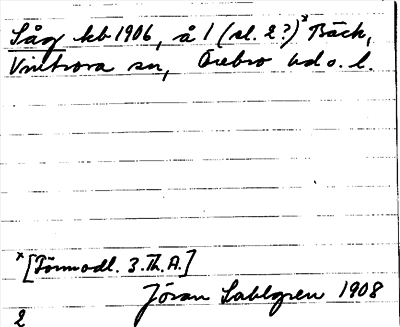 Såg kb 1906, å 1 (sl. 2?)ˣ Bäck,
Vintrosa sn, Örebro hd o. l.
ˣ[Förmodl. 3. Th. A.]
Jöran Sahlgren 1908
2